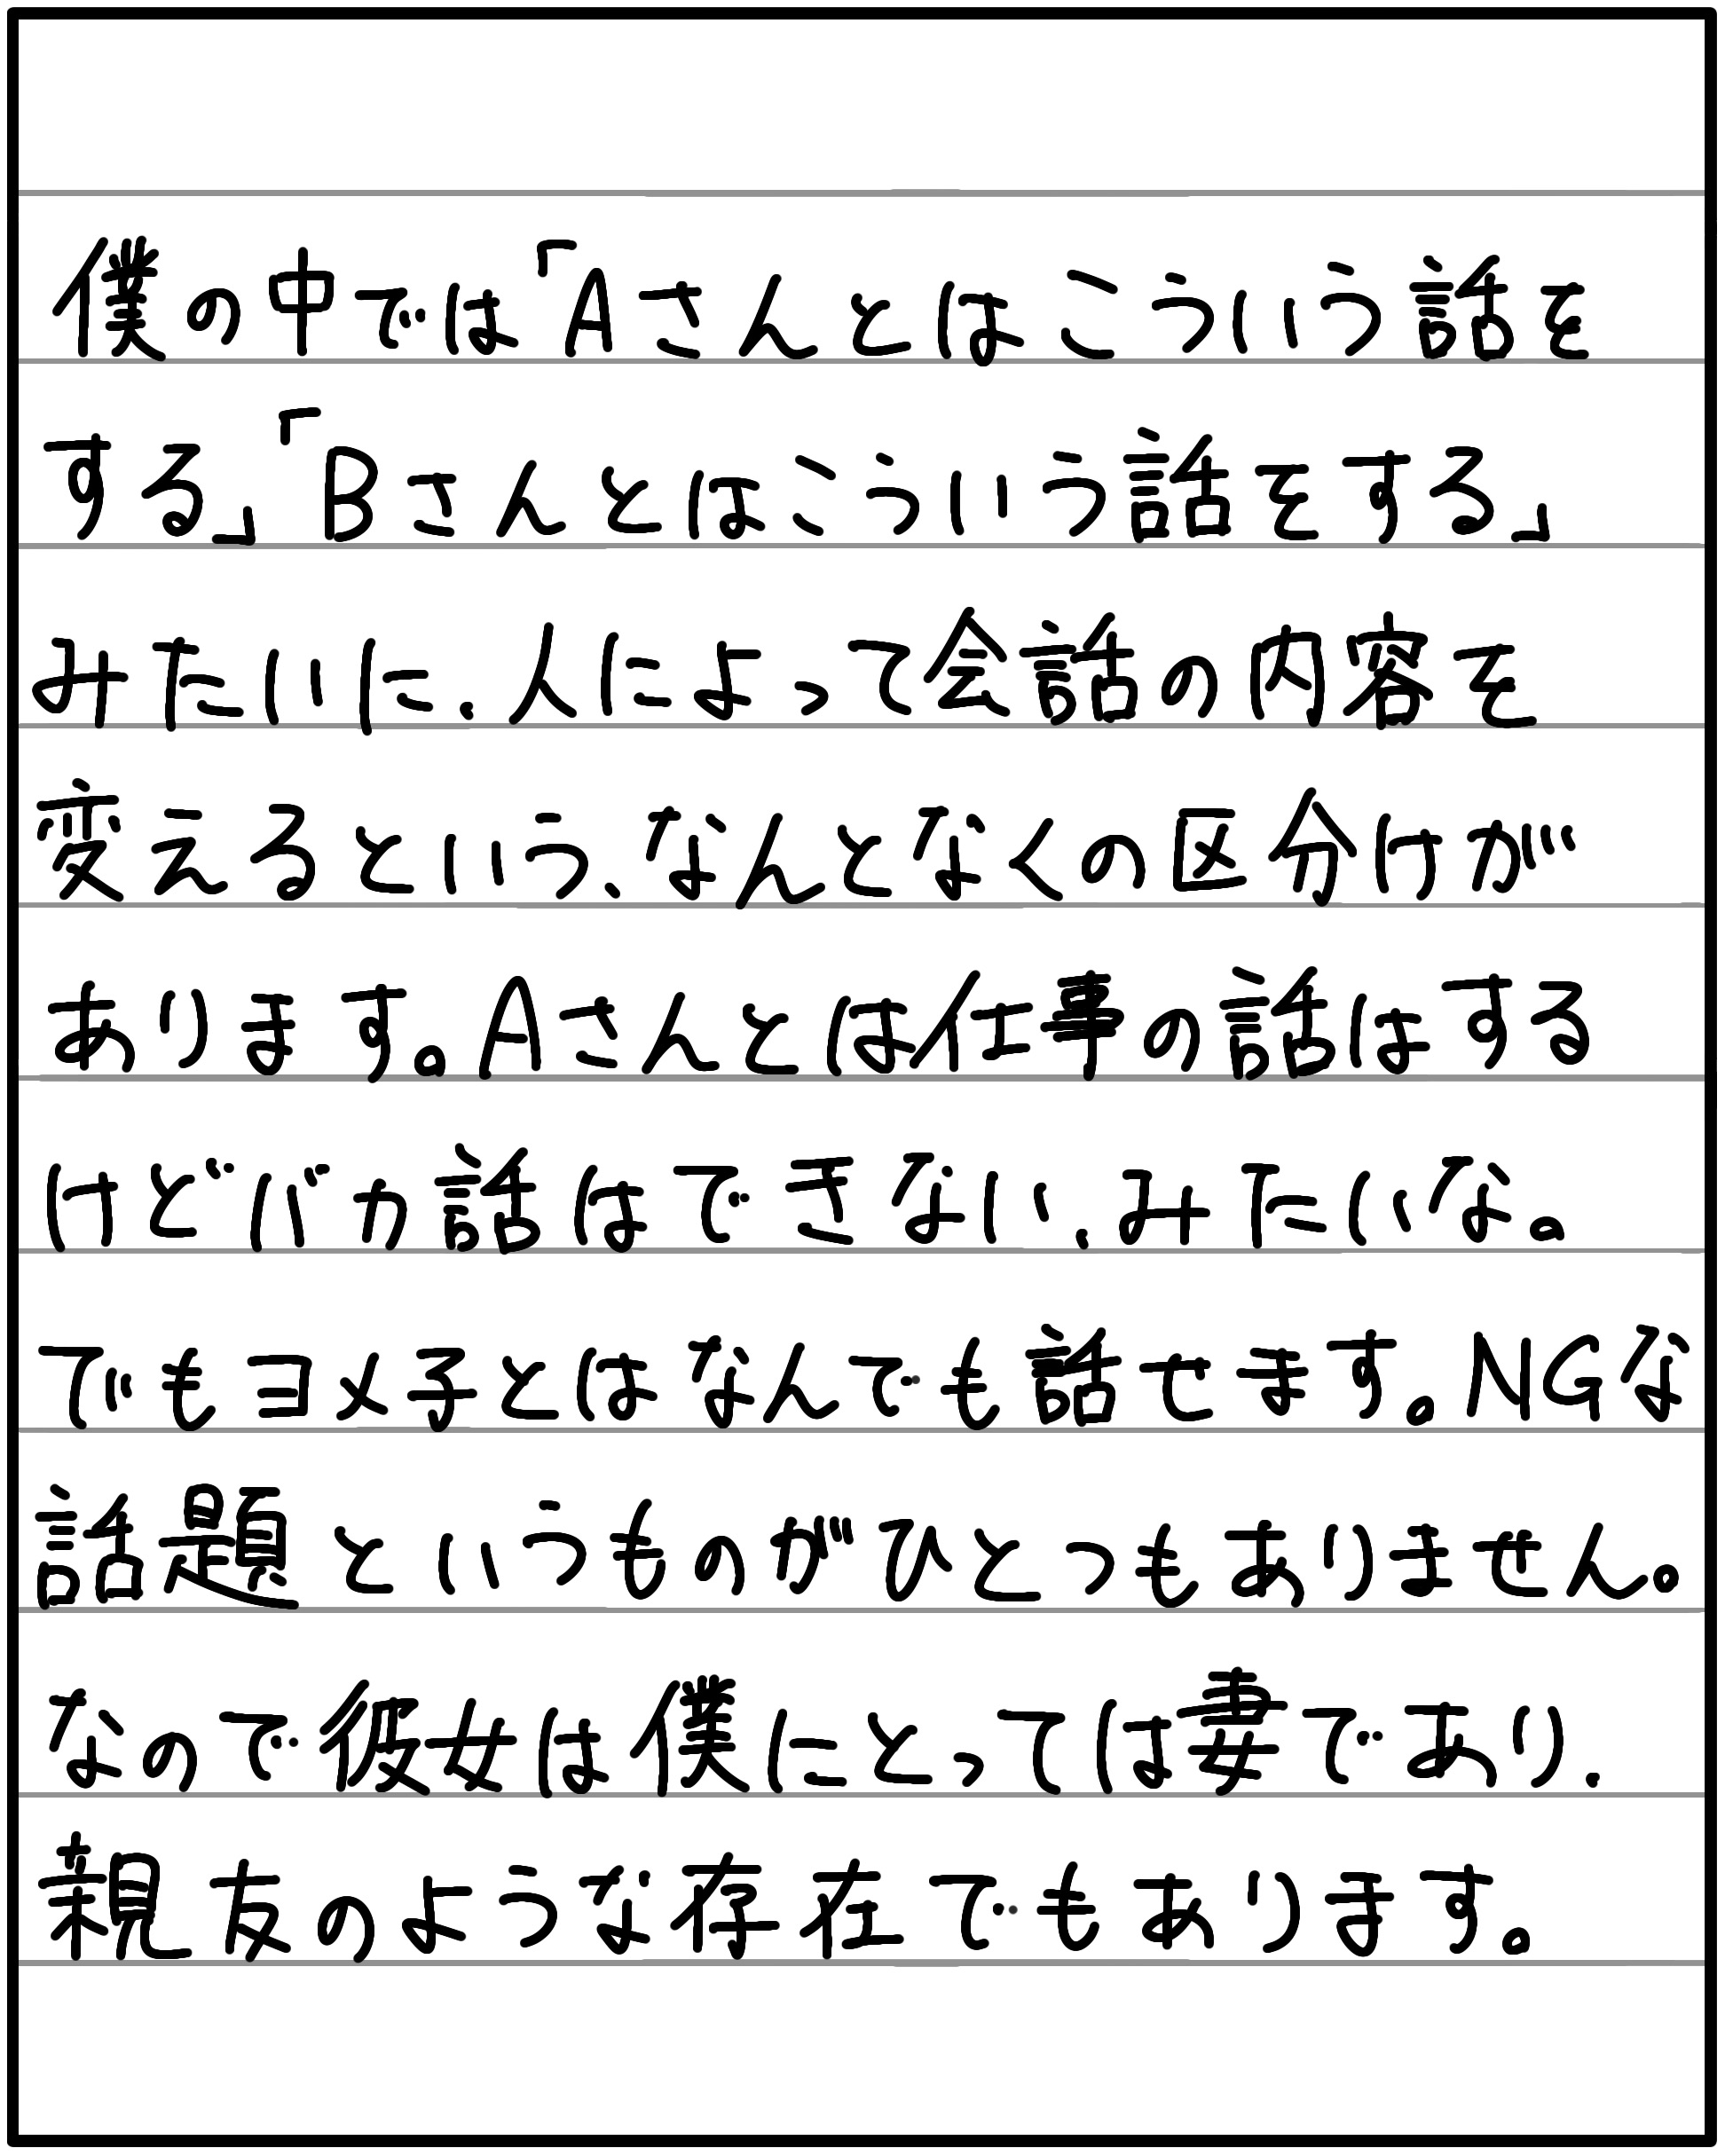 僕の中では「Aさんとはこういう話を
する」「Bさんとはこういう話をする」
みたいに、人によって会話の内容を
変えるという、なんとなくの区分けが
あります。Aさんとは仕事の話はする
けどバカ話はできない、みたいな。
でもヨメ子とはなんでも話せます。NGな
話題というものがひとつもありません。
なので彼女は僕にとっては妻であり、
親友のような存在でもあります。